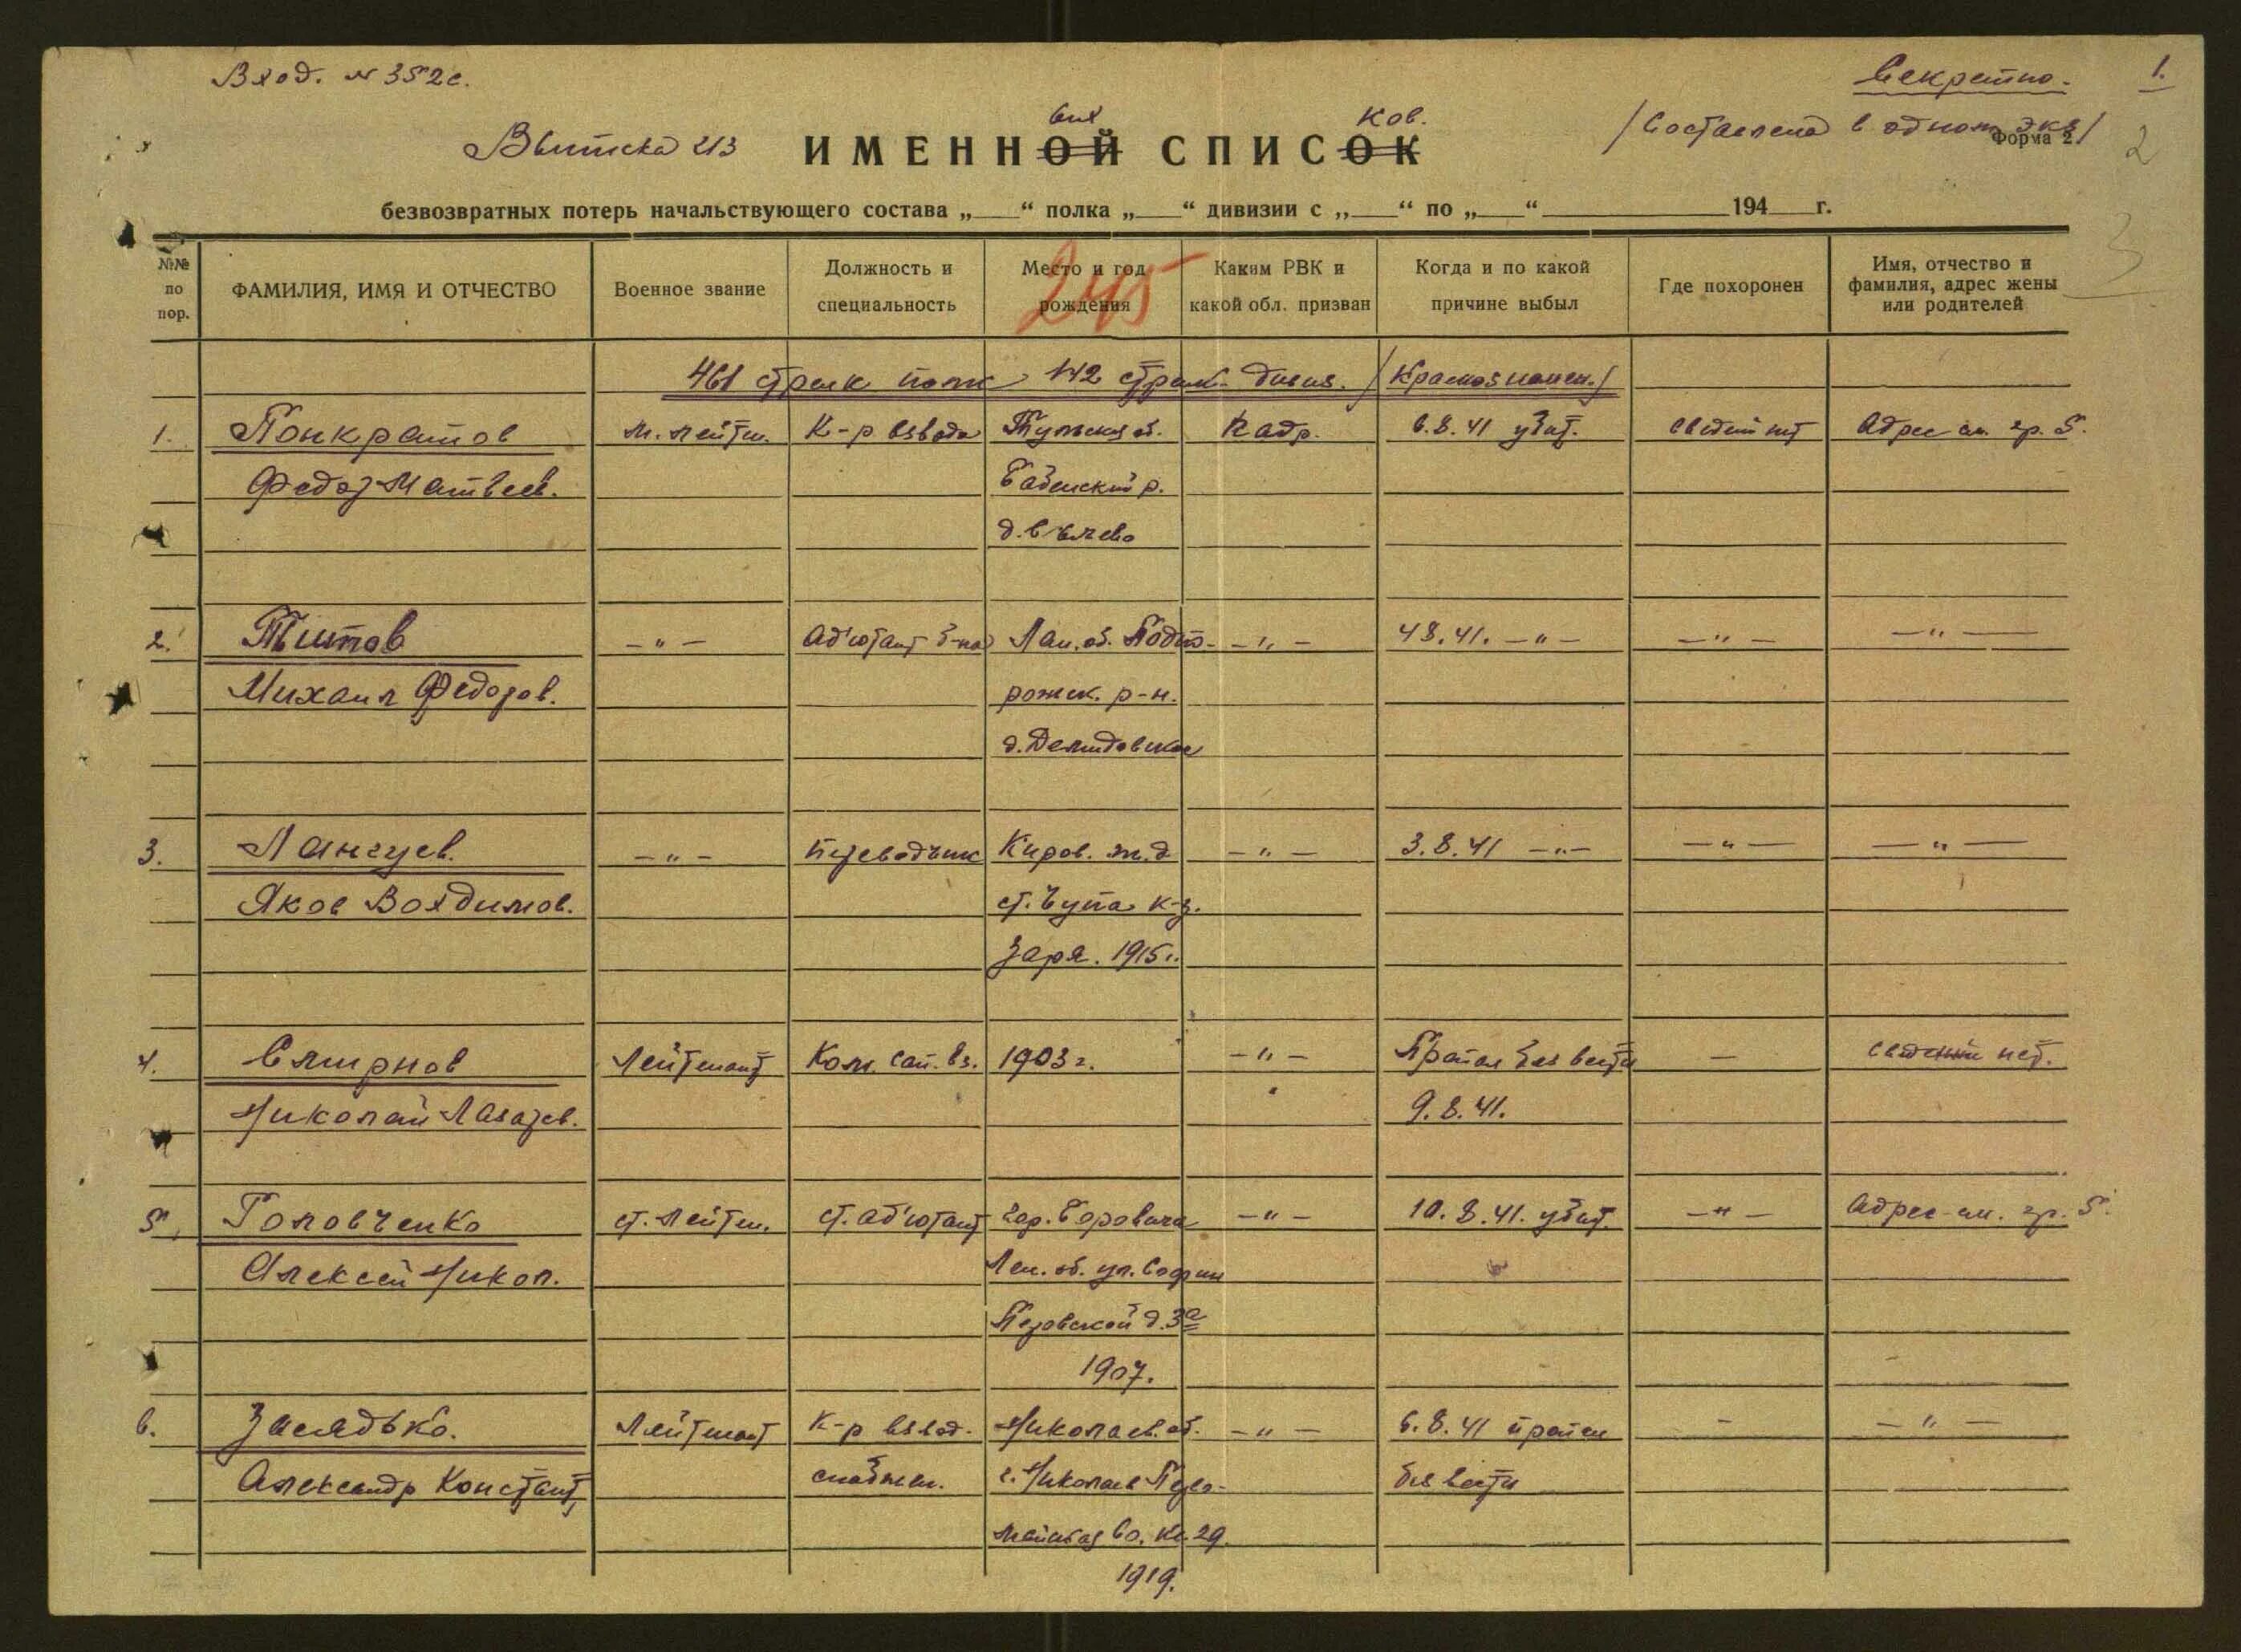 Вход. № 352с.
Секретно.
1.
Выписка из ИМЕННОЙ СПИСОК
ых
ков.
/Составлена в одном экз/
Форма 2
2
безвозвратных потерь начальствующего состава „___“ полка „___“ дивизии с „___“ по „___“ ______ 194__г.
3
№№ по пор.
ФАМИЛИЯ, ИМЯ И ОТЧЕСТВО
Военное звание
Должность и специальность
Место и год рождения
Каким РВК и какой обл. призван
Когда и по какой причине выбыл
Где похоронен
Имя, отчество и фамилия, адрес жены или родителей
245
461 стрелк полк 142 стрелк. дивиз. /Краснознамен./
1. Понкратов м. лейтн. К-р взвода Тульская об. Кадр. 6.8.41 убит. сведений нет Адрес см. гр. 5.
Федор Матвеев. р.
д.
2. Титов —„— Ад'ютант б-на Лен. об. Подпо- —„— 4 8.41. —„— —„— —„—
Михаил Федоров. рожск. р-н.
д. Демидовское
3. Лангуев. —„— переводчик Киров. ж.д —„— 3.8.41 —„— —„— —„—
Яков Вохдимов. ст. Чупа к-з.
Заря. 1915г.
4. Смирнов Лейтенант Ком. сап. вз. 1903 г. —„— Пропал без вести — сведений нет.
Николай Лазарев. 9.8.41.
5. Головченко ст. лейтен. ст. ад'ютант гор. Боровичи —„— 10.8.41. убит. —„— Адрес см. гр. 5.
Алексей Никол. Лен. об. ул. Софии
Перовской д. 3а
1907.
6. Засядько. Лейтенант К-р взвод. Николаев. об. —„— 6.8.41 пропал — —„—
Александр Констант, снабжен. г. Николаев без вести
29.
1919.